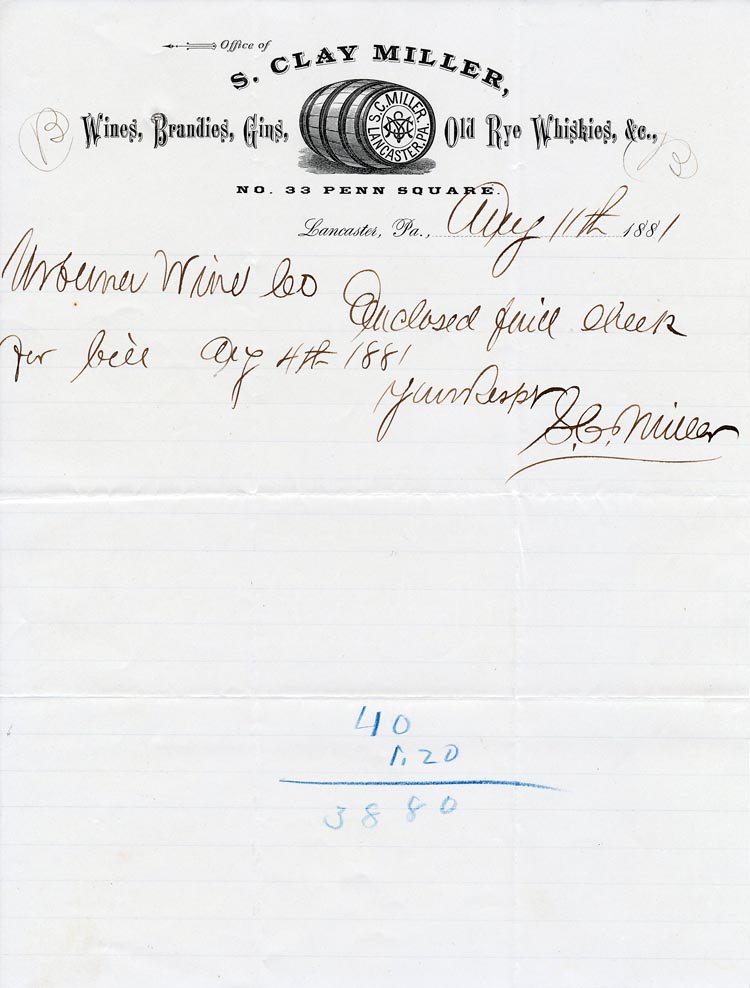 Office of
S. CLAY MILLER,
Wines, Brandies, Gins, Old Rye Whiskies, &c.,
S.C. MILLER
LANCASTER, PA.
NO. 33 PENN SQUARE.
Lancaster, Pa., Aug 11th 1881
Urbana Wine Co
Enclosed find Check
for bill Aug 4th 1881
Your Respt
S.C. Miller
40
1.20
3880